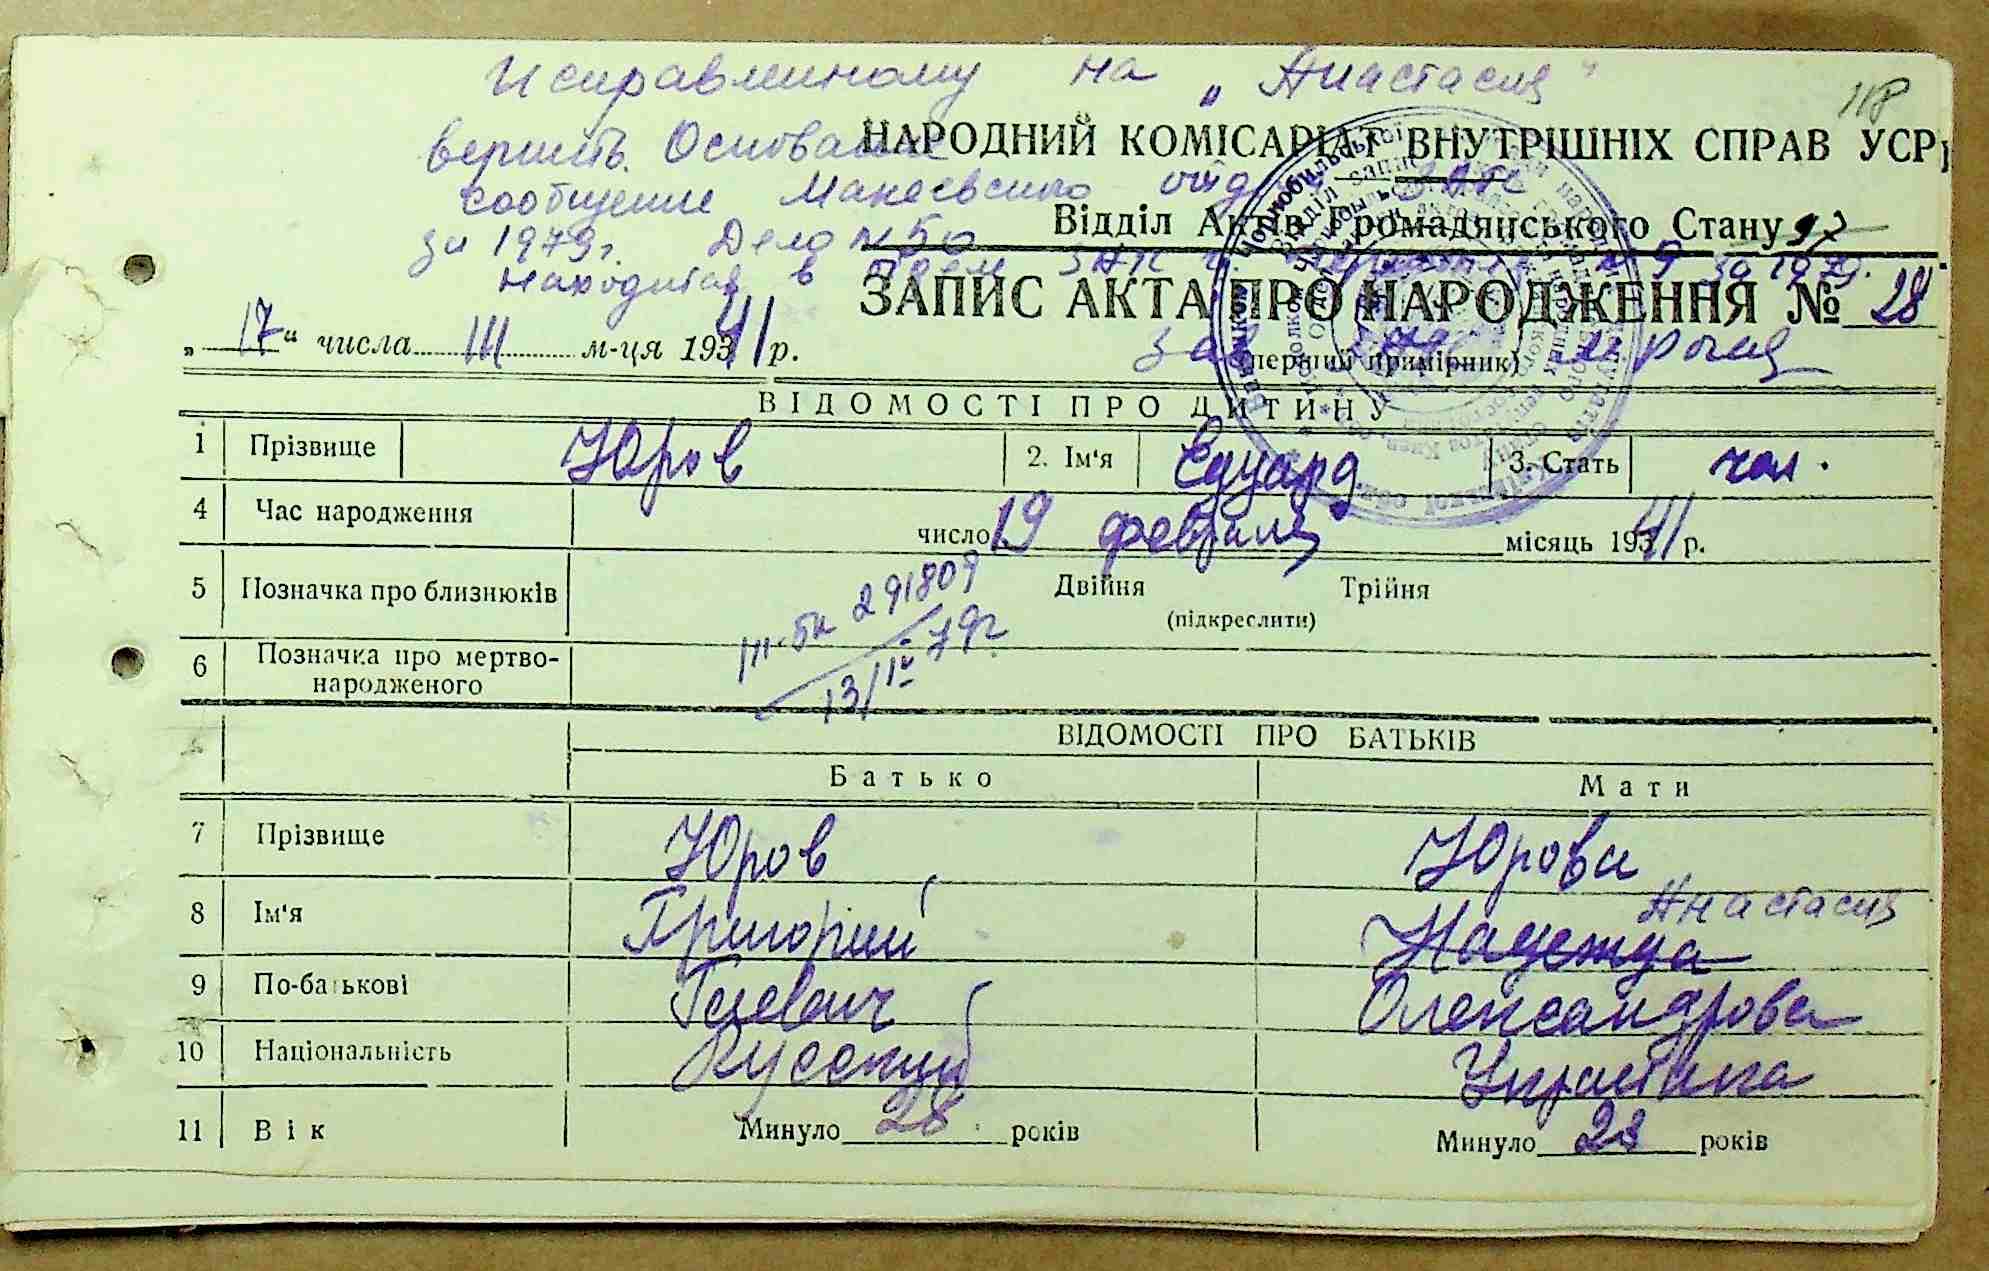 Исправленному на „Анастасия“
118
НАРОДНИЙ КОМІСАРІАТ ВНУТРІШНІХ СПРАВ УСРР
верить. Основание
сообщение Макеевского отд ЗАГС
Відділ Актів Громадянського Стану
за 1979г. Дело №50
находится в ЗАГС за 1979г.
ЗАПИС АКТА ПРО НАРОДЖЕННЯ № 28
„ 17 “ числа III м-ця 1941 р.
(перший примірник)
ВІДОМОСТІ ПРО ДИТИНУ
1 Прізвище Юров 2. Ім'я Едуард 3. Стать чол.
4 Час народження число 19 февраля місяць 1941 р.
5 Позначка про близнюків Двійня Трійня
(підкреслити)
291809
13/II 79г
6 Позначка про мертво-
народженого
ВІДОМОСТІ ПРО БАТЬКІВ
Батько Мати
7 Прізвище Юров Юрова
Анастасия
8 Ім'я Григорий Надежда
9 По-батькові Олександрова
10 Національність Русский Украинка
11 Вік Минуло 28 років Минуло 23 років